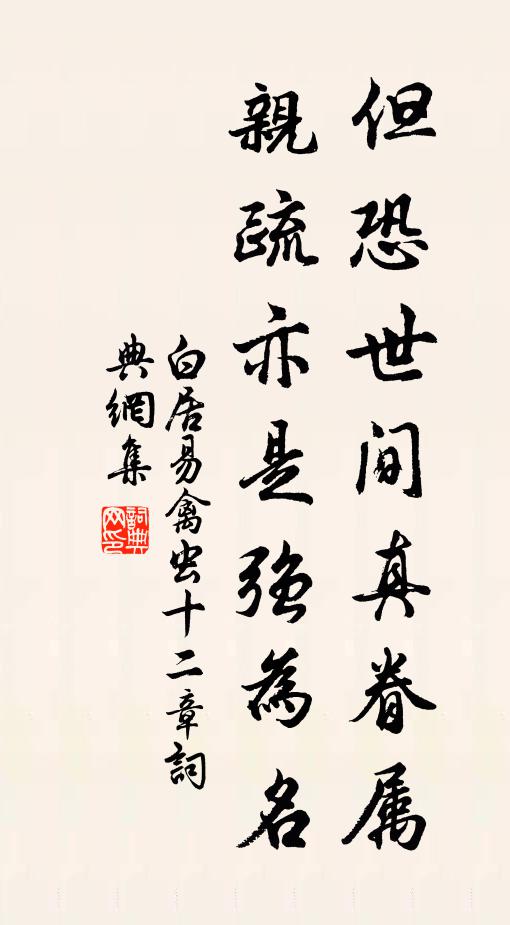 但恐世间真眷属
親疏亦是強為名
白居易禽虫十二章詞
典網集
詞典网印